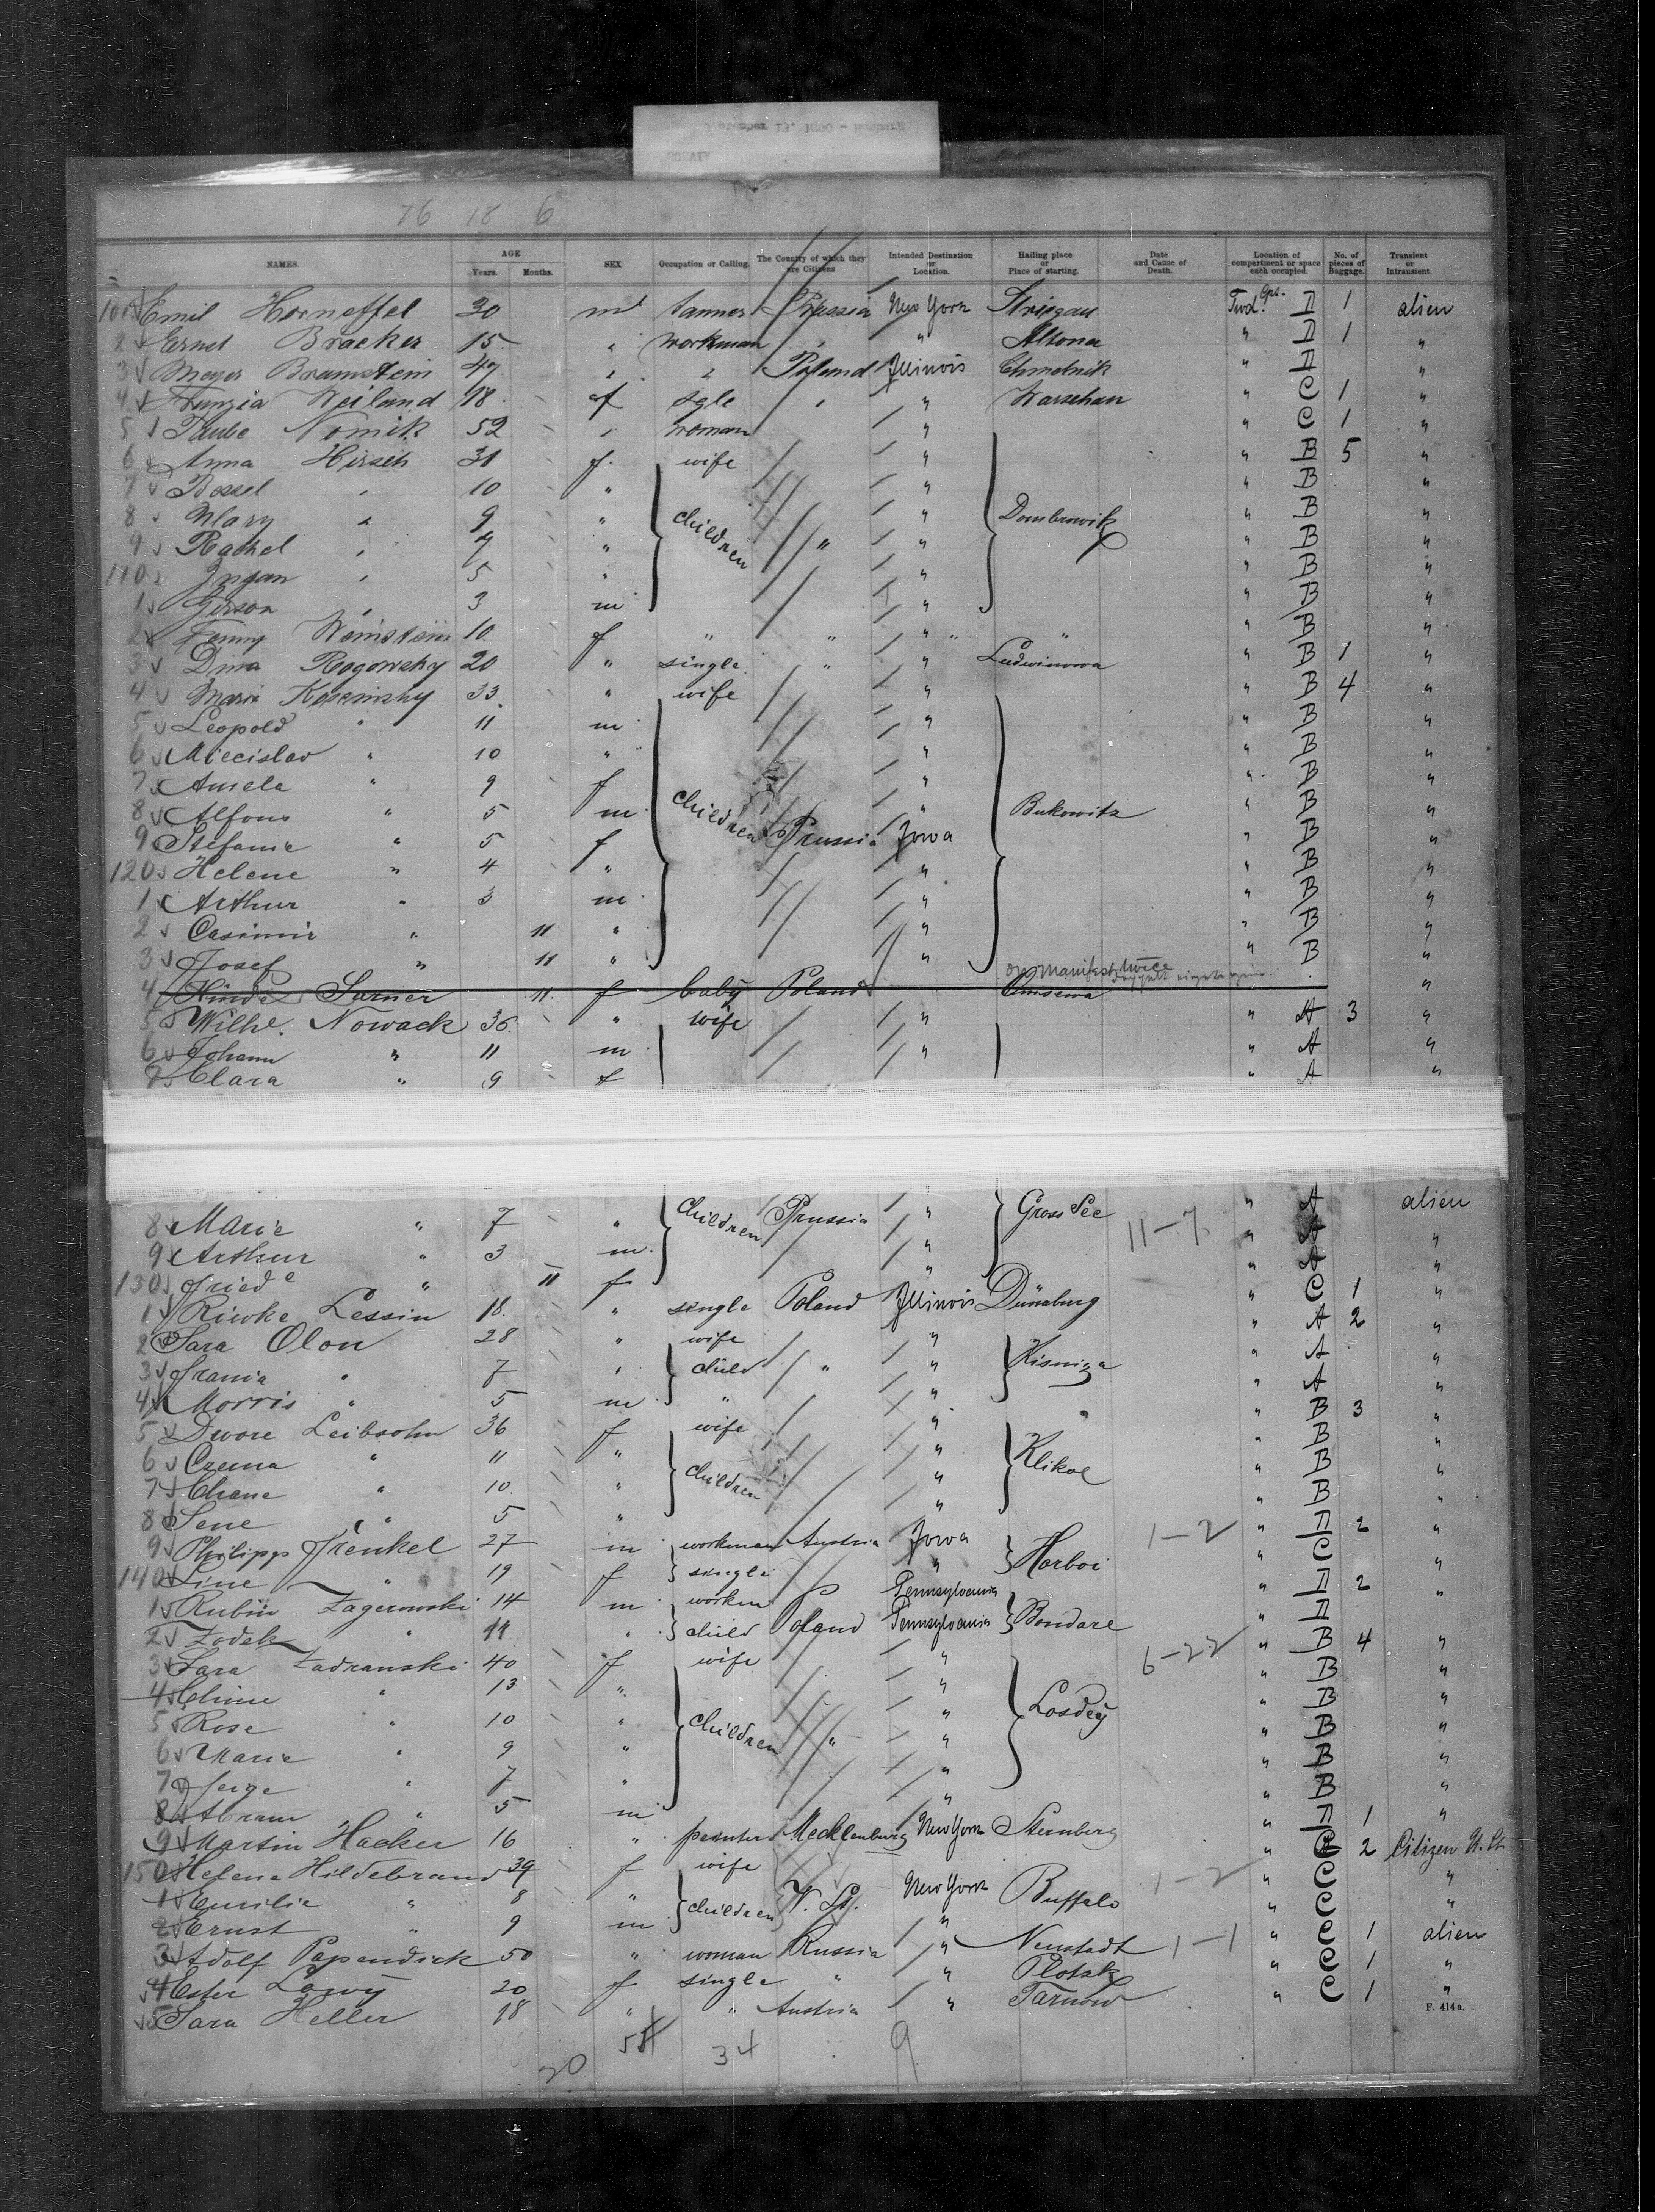 76 18 6
NAMES. AGE Years. Months. SEX Occupation or Calling. The Country of which they are Citizens Intended Destination or Location. Hailing place or Place of starting. Date and Cause of Death. Location of compartment or space each occupied. No. of pieces of baggage. Transient or Intransient.
Emil Horneffel 30 m tanner Prussia New York Strigau II 1 alien
2 Ernst Bracker 15 " workman " " Altona " II 1 "
3 Meyer Bramstein 47 " " Poland Illinois Chmelnik " II "
4 Weiland 18 f sgle " " Warschau " C 1 "
5 Taube Nomik 52 " woman " " C 1 "
6 Anna Hirsch 31 f. wife " " B 5 "
7 Rossel " 10 " " " B "
8 Mary " 9 " children " Dombrowik " B "
9 Rachel " 7 " " " " B "
110 " 5 " " " B "
1 Gerson " 3 m " " B "
2 Fanny Weinstein 10 f " " " " " B "
3 Dina Rogowsky 20 " single " " Ludwinowa " B 1 "
4 Marie Koseminsky 33 " wife " " B 4 "
5 Leopold " 11 m " " B "
6 Miecislav " 10 " " " B "
7 Amela " 9 f " " B "
8 Alfons " 5 m children " Bukowitz " B "
9 Stefanie " 5 f Prussia Iowa " B "
120 Helene " 4 " " " B "
1 Arthur " 3 m " " B "
2 Casimir " 11 " " " B "
3 Josef " 11 " " " B "
on manifest twice
4 Hinde Sarner 11 f baby Poland "
5 Wilhe. Nowack 36 " wife " " A 3 "
6 Johann " 11 m " " A "
7 Clara " 9 f " A "
8 Marie " 7 " children Prussia " Gross See " A alien
9 Arthur " 3 m " 11-7 " A "
130 Friede " 11 f " " A "
1 Riwke Lessin 18 " single Poland Illinois Dünaburg " C 1 "
2 Sara Olon 28 " wife " " A 2 "
3 Frania " 7 " child " " Kisniza " A "
4 Morris " 5 m " " " A "
5 Dwore Leibsohn 36 f wife " " B 3 "
6 Czerna " 11 " " Klikol " B "
7 Chane " 10 " children " " B "
8 Sene " 5 " " " B "
9 Philipp Frenkel 27 m workman Austria Iowa Horboi 1-2 " II 2 "
140 Line " 19 f single " " C "
1 Rubin Zagerowski 14 m workm Poland Pennsylvania Bondare " II 2 "
2 Zodek " 11 " child Pennsylvania " II
3 Sara Zadranski 40 f wife " 6-22 " B 4 "
4 Chine " 13 " " " B "
5 Rose " 10 " children " Losdey " B "
6 Marie " 9 " " " " B "
7 " 7 " " " B "
8 Abram " 5 m " " B "
9 Martin Hacker 16 " painter Mecklenburg New York Sternberg " II 1 "
150 Helena Hildebrand 39 f wife " C 2 Citizen U. St.
1 Emilie " 8 " children U. St. New York Buffalo 1-2 " C "
2 Ernst " 9 m " " C "
3 Adolf Papendick 50 " woman Russia " Neustadt 1-1 " C 1 alien
4 Ester Löwy 20 f single " " Plotzk " C 1 "
5 Sara Heller 18 " " Austria " Tarnow " C 1 "
F. 414 a.
34 9
20